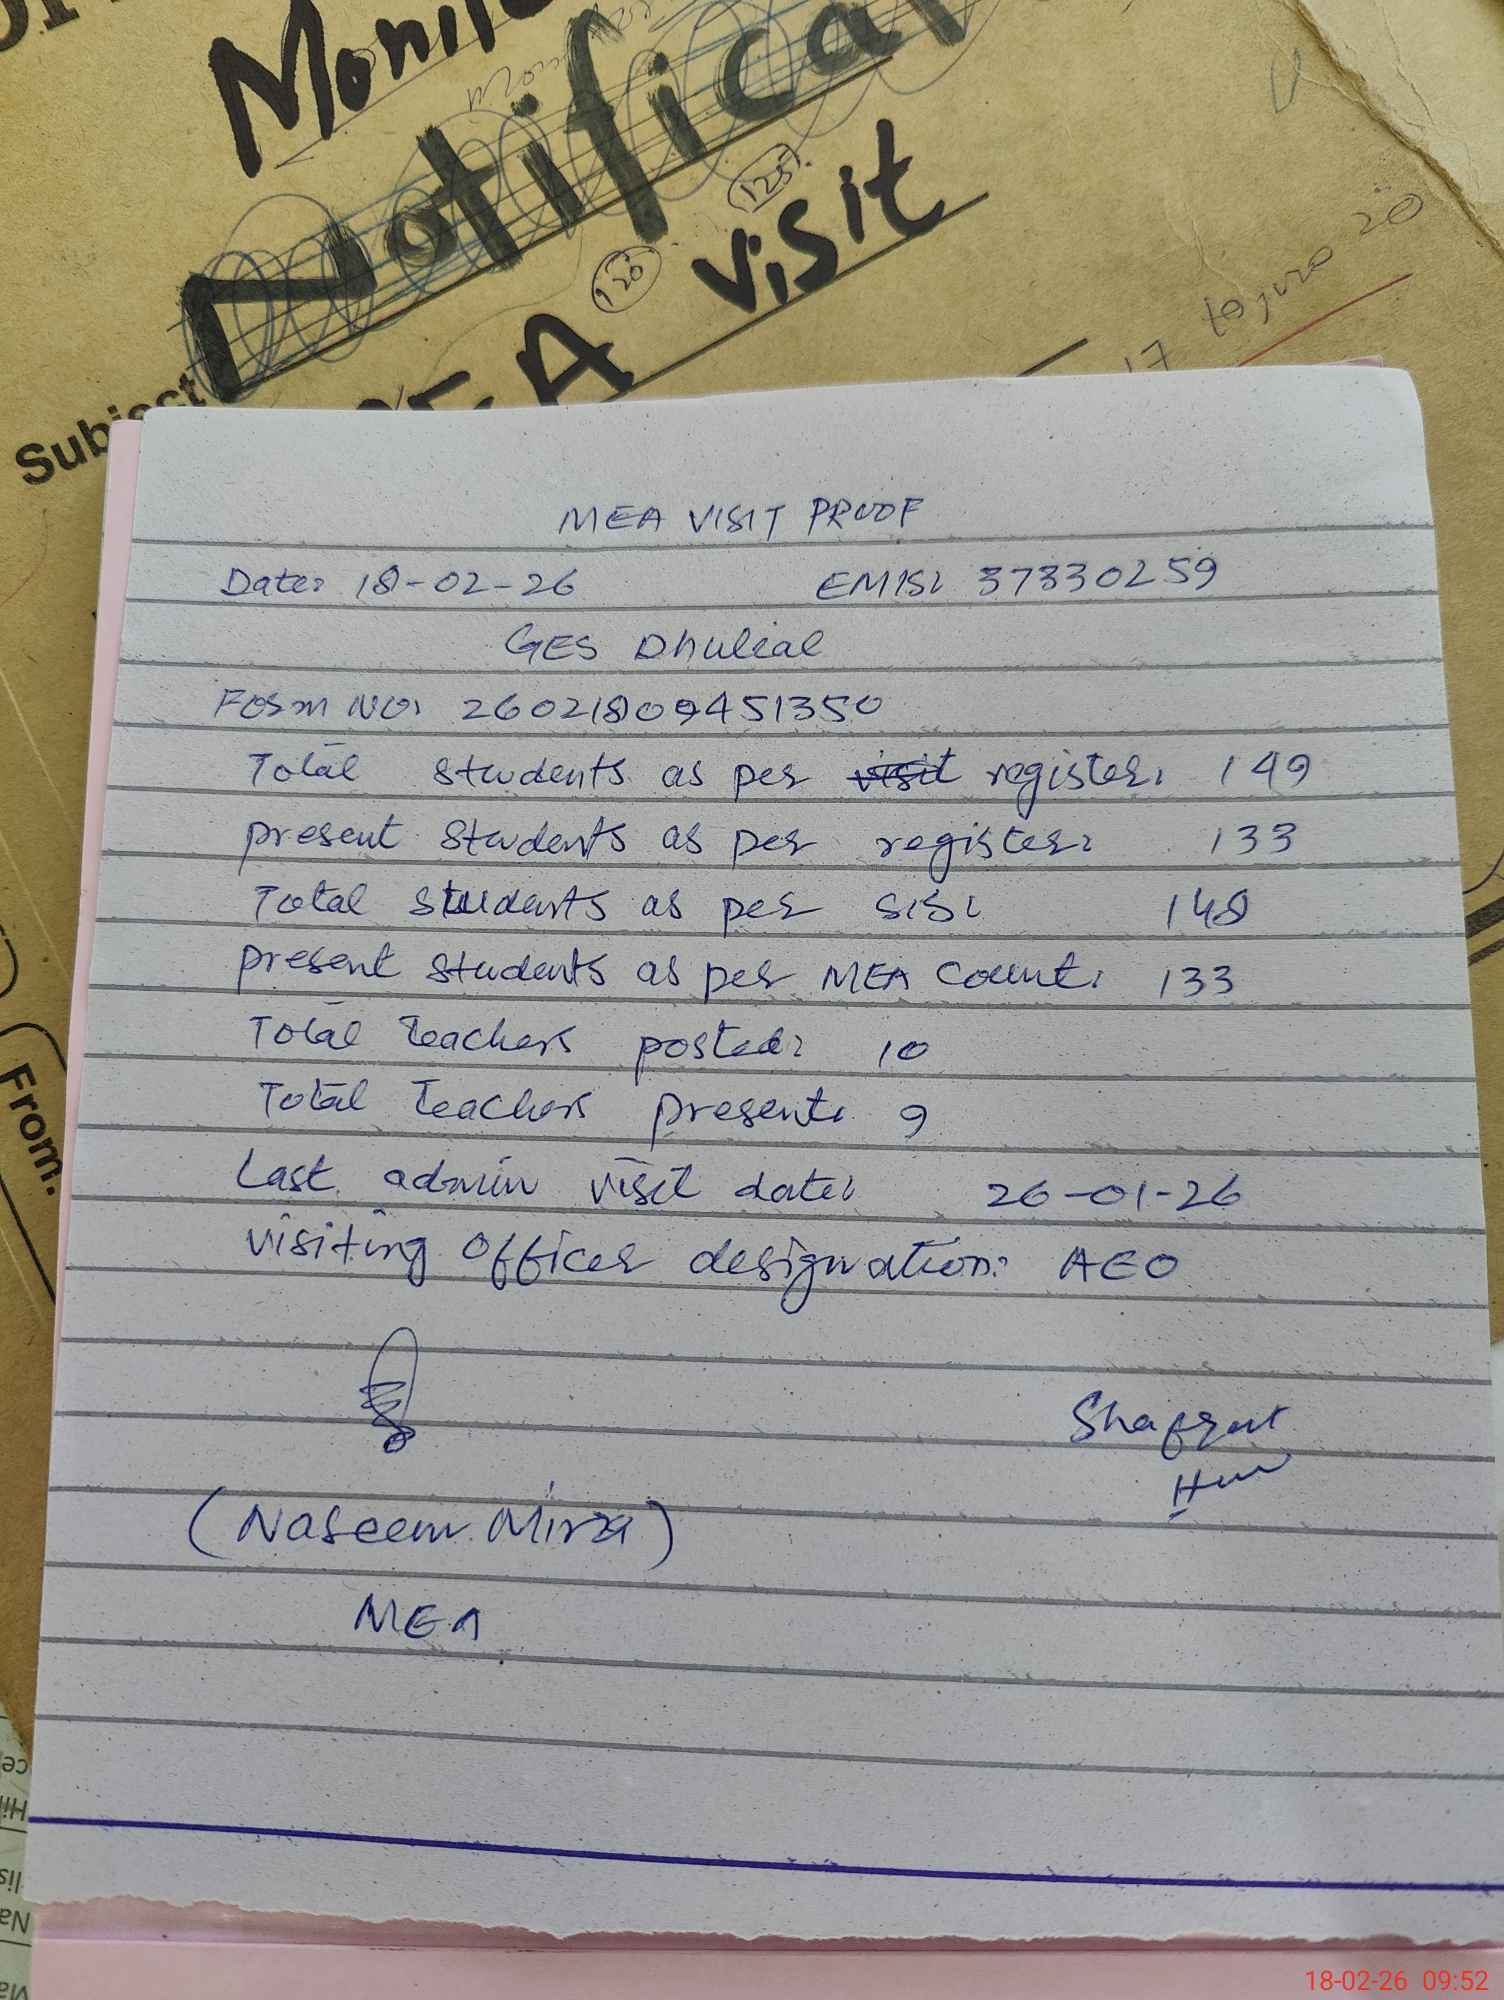 Notifica
visit
EA
Subject
125
17 to june 20
From:
MEA VISIT PROOF
Date: 18-02-26 EMIS: 37330259
GES Dhulial
Form No: 26021809451350
Total students as per visit register: 149
present students as per register: 133
Total students as per SIS: 148
present students as per MEA count: 133
Total Teachers posted: 10
Total Teachers present: 9
Last admin visit date: 26-01-26
visiting officer designation: AEO
Shafqat
(Naseem Mirza)
MEA
18-02-26 09:52